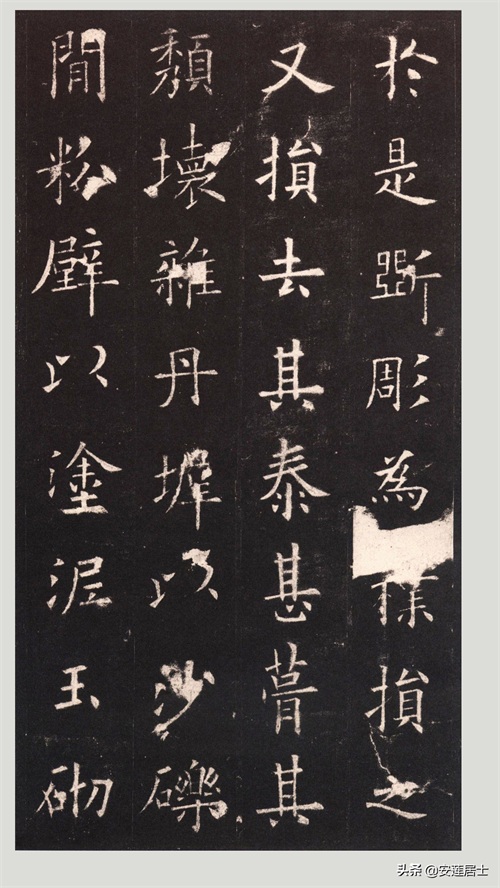 於是斲彫為樸損之
又損去其泰甚葺其
頹壞雜丹墀以沙礫
閒粉壁以塗泥玉砌
头条 @安蓮居士